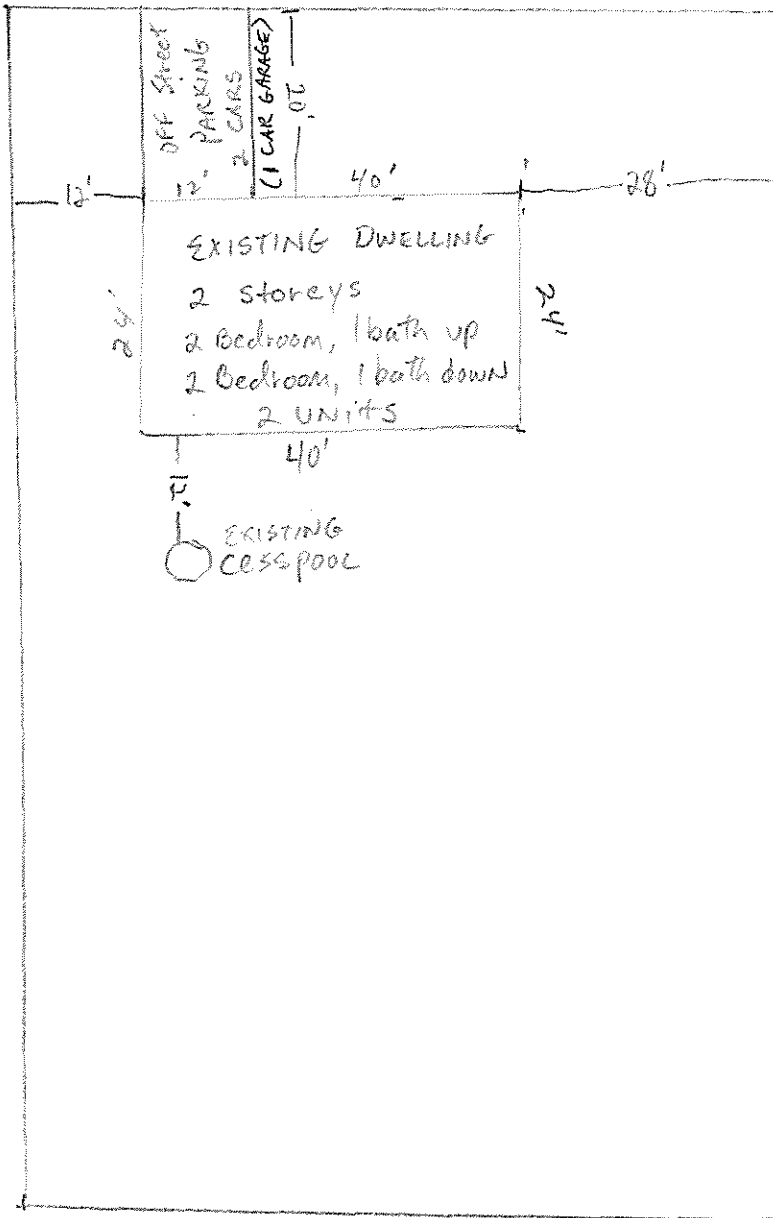 OFF Street
PARKING
2 CARS
(1 CAR GARAGE)
20'
12'
12'
40'
28'
EXISTING DWELLING
2 Storeys
2 Bedroom, 1 bath up
2 Bedroom, 1 bath down
2 UNITS
24'
24'
40'
12'
EXISTING
CESSPOOL